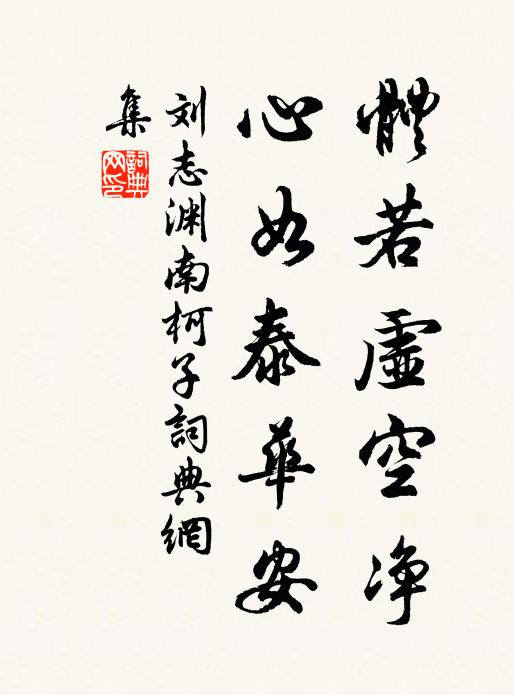 體若虛空净
心如泰華安
刘志渊南柯子詞典網
集
詞典网印